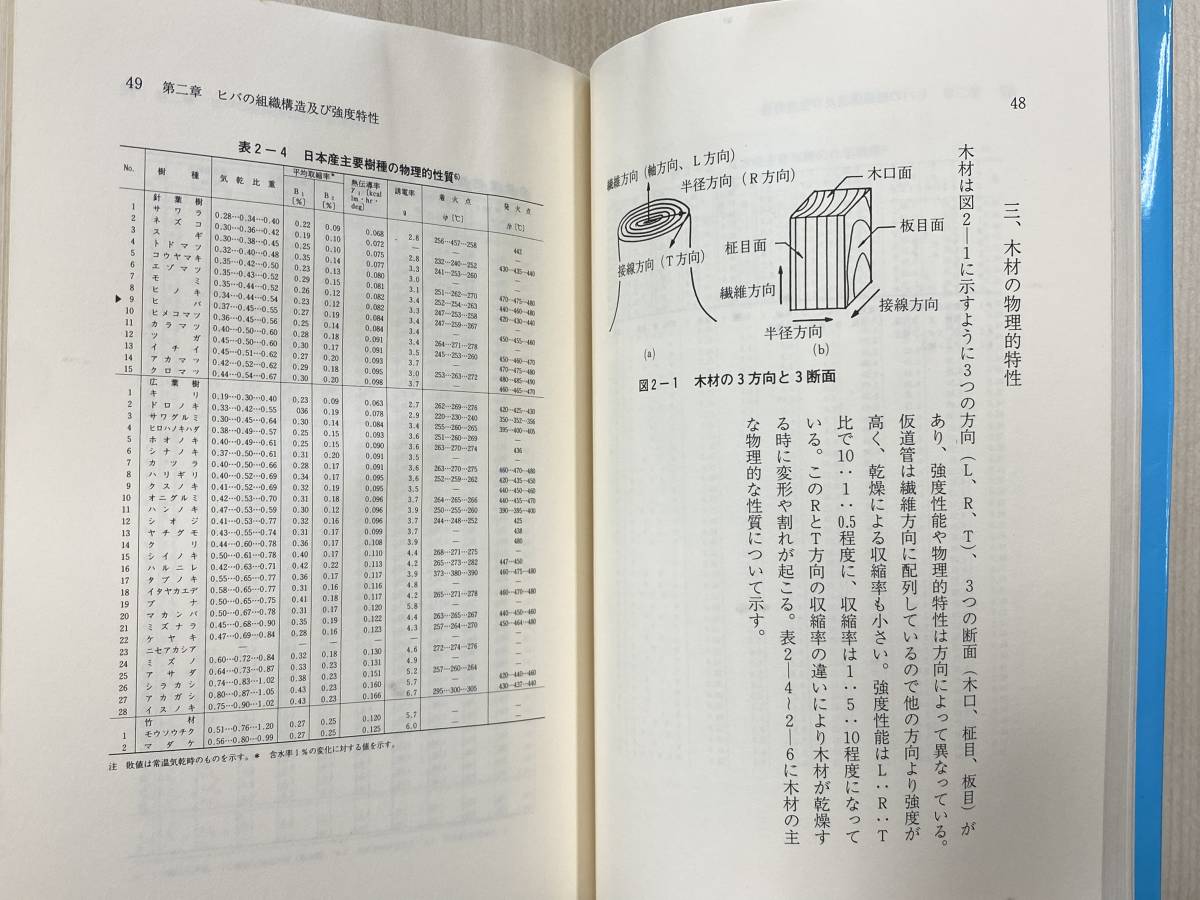 48
三、木材の物理的特性
木材は図2—1に示すように3つの方向(L、R、T)、3つの断面(木口、柾目、板目)が
あり、強度性能や物理的特性は方向によって異なっている。
仮道管は繊維方向に配列しているので他の方向より強度が
高く、乾燥による収縮率も小さい。強度性能はL：R：T
比で10：1：0.5程度に、収縮率は1：5：10程度になって
いる。このRとT方向の収縮率の違いにより木材が乾燥す
る時に変形や割れが起こる。表2—4～2—6に木材の主
な物理的な性質について示す。
繊維方向(軸方向、L方向)
半径方向(R方向)
接線方向(T方向)
(a)
木口面
板目面
柾目面
繊維方向
接線方向
半径方向
(b)
図2−1 木材の3方向と3断面
49 第二章 ヒバの組織構造及び強度特性
表2−4 日本産主要樹種の物理的性質6)
No. 樹種 気乾比重 平均収縮率* B1[%] B2[%] 熱伝導率 γ1[kcal/m·hr·deg] 誘電率 着火点 [℃] 発火点 [℃]
針葉樹
1 サワラ 0.28…0.34…0.40 0.22 0.09 0.068 2.8 256…457…258 442
2 ネズコ 0.30…0.36…0.42 0.19 0.10 0.072 — — —
3 スギ 0.30…0.38…0.45 0.25 0.10 0.075 2.8 232…240…252 430…435…440
4 トドマツ 0.32…0.40…0.48 0.35 0.14 0.077 3.3 241…253…260 —
5 コウヤマキ 0.35…0.42…0.50 0.23 0.13 0.080 3.0 — —
6 エゾマツ 0.35…0.43…0.52 0.29 0.15 0.081 3.1 251…262…270 470…475…480
7 モミ 0.35…0.44…0.52 0.26 0.12 0.082 3.4 252…254…263 440…460…480
8 ヒノキ 0.34…0.44…0.54 0.23 0.12 0.082 3.3 247…253…258 420…430…440
▶9 ヒバ 0.37…0.45…0.55 0.27 0.19 0.084 3.4 247…259…267 —
10 ヒメコマツ 0.36…0.45…0.56 0.25 0.14 0.084 3.4 — 450…455…460
11 カラマツ 0.40…0.50…0.60 0.28 0.18 0.091 3.4 264…271…278 —
12 ツガ 0.45…0.50…0.60 0.30 0.17 0.091 3.5 245…253…260 450…460…470
13 イチイ 0.45…0.51…0.62 0.27 0.20 0.093 — — 470…475…480
14 アカマツ 0.42…0.52…0.62 0.29 0.18 0.095 3.0 253…263…272 480…485…490
15 クロマツ 0.44…0.54…0.67 0.30 0.20 0.098 3.7 — 460…465…470
広葉樹
1 キリ 0.19…0.30…0.40 0.23 0.09 0.063 2.7 262…269…276 420…425…430
2 ドロノキ 0.33…0.42…0.55 036 0.19 0.078 2.9 220…230…240 350…352…356
3 サワグルミ 0.30…0.45…0.64 0.30 0.14 0.084 3.4 255…260…265 395…400…405
4 ヒロハノキハダ 0.38…0.49…0.57 0.25 0.15 0.093 3.6 251…260…269 —
5 ホオノキ 0.40…0.49…0.61 0.25 0.15 0.090 3.6 263…270…274 436
6 シナノキ 0.37…0.50…0.61 0.31 0.20 0.091 3.5 — —
7 カツラ 0.40…0.50…0.66 0.28 0.17 0.091 3.6 263…270…275 460…470…480
8 ハリギリ 0.40…0.52…0.69 0.34 0.17 0.095 3.6 252…259…262 420…435…450
9 クスノキ 0.41…0.52…0.69 0.32 0.19 0.095 3.5 — 440…450…460
10 オニグルミ 0.42…0.53…0.70 0.31 0.18 0.096 3.7 264…265…266 440…455…470
11 ハンノキ 0.47…0.53…0.59 0.30 0.12 0.096 3.9 250…255…260 390…395…400
12 シオジ 0.41…0.53…0.77 0.32 0.16 0.096 3.7 244…248…252 425
13 ヤチグモ 0.43…0.55…0.74 0.31 0.17 0.099 3.7 — 438
14 クリ 0.44…0.60…0.78 0.36 0.17 0.108 3.9 — 480
15 シイノキ 0.50…0.61…0.78 0.40 0.17 0.110 4.4 268…271…275 —
16 ハルニレ 0.42…0.63…0.71 0.42 0.22 0.113 4.2 265…273…282 447…450
17 タブノキ 0.55…0.65…0.77 0.36 0.17 0.117 3.9 373…380…390 460…475…480
18 イタヤカエデ 0.58…0.65…0.77 0.31 0.16 0.116 4.8 — —
19 ブナ 0.50…0.65…0.75 0.41 0.18 0.117 4.2 265…271…278 460…470…480
20 マカンバ 0.50…0.67…0.78 0.31 0.17 0.120 5.8 — —
21 ミズナラ 0.45…0.68…0.90 0.35 0.19 0.122 4.4 263…265…267 440…450…460
22 ケヤキ 0.47…0.69…0.84 0.28 0.16 0.123 4.3 257…264…270 450…464…480
23 ニセアカシア — — — — — — —
24 ミズノ 0.60…0.72…0.84 0.32 0.18 0.130 4.6 272…274…276 —
25 アサダ 0.64…0.73…0.87 0.53 0.23 0.131 4.9 — —
26 シラカシ 0.74…0.83…1.02 0.38 0.23 0.151 5.2 257…260…264 420…440…460
27 アカガシ 0.80…0.87…1.05 0.43 0.23 0.160 5.7 — 430…437…440
28 イスノキ 0.75…0.90…1.02 0.43 0.23 0.166 6.7 295…300…305 —
竹材
1 モウソウチク 0.51…0.76…1.20 0.27 0.25 0.120 5.7 — —
2 マダケ 0.56…0.80…0.99 0.27 0.25 0.125 6.0 — —
注 敗値は常温気乾時のものを示す。* 含水率1％の変化に対する値を示す。